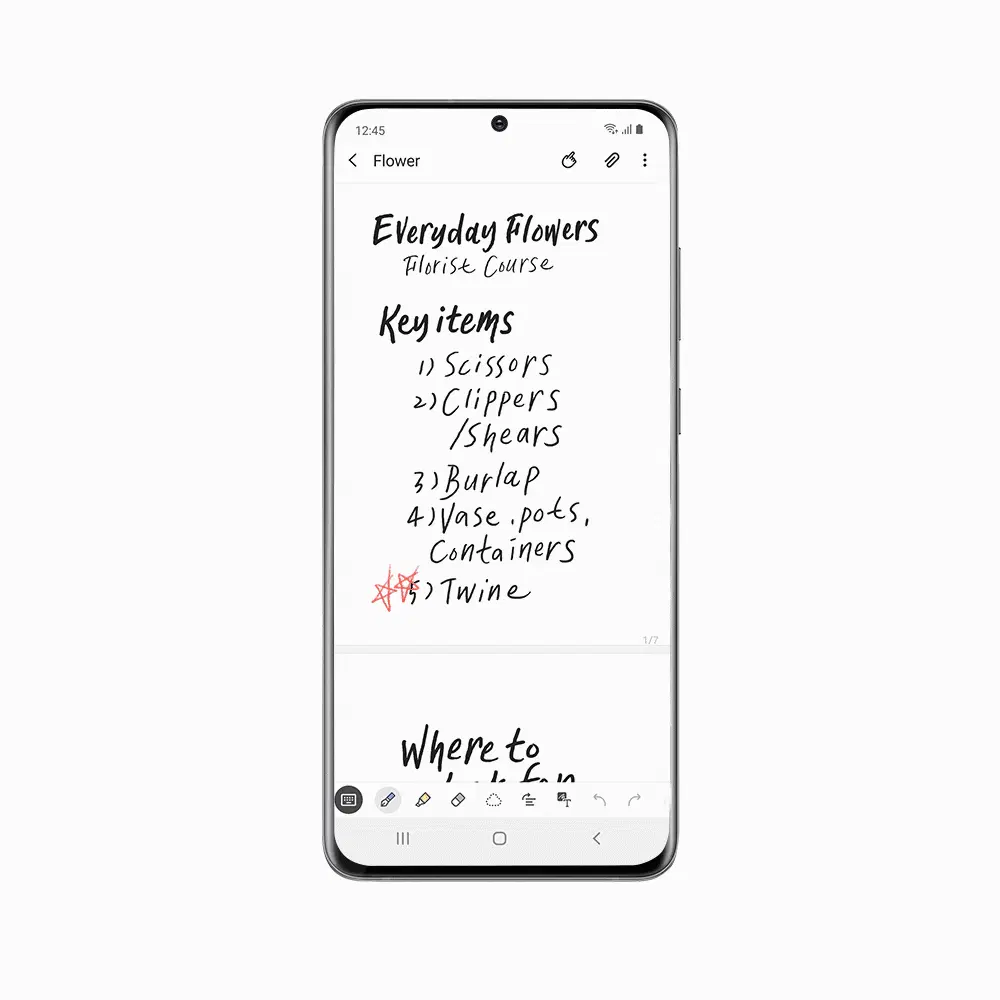 12:45
Flower
Everyday Flowers
Florist Course
Key items
1) Scissors
2) Clippers
/Shears
3) Burlap
4) Vase . pots,
Containers
5) Twine
1/7
Where to
look for